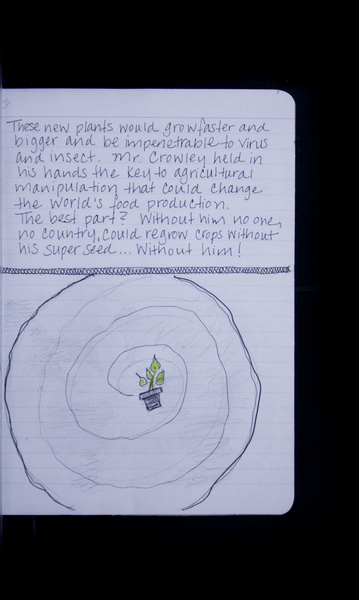 These new plants would grow faster and
bigger and be impenetrable to virus
and insect. Mr. Crowley held in
his hands the key to agricultural
manipulation that could change
the world's food production.
The best part? Without him no one,
no country, could regrow crops without
his super seed... Without him!